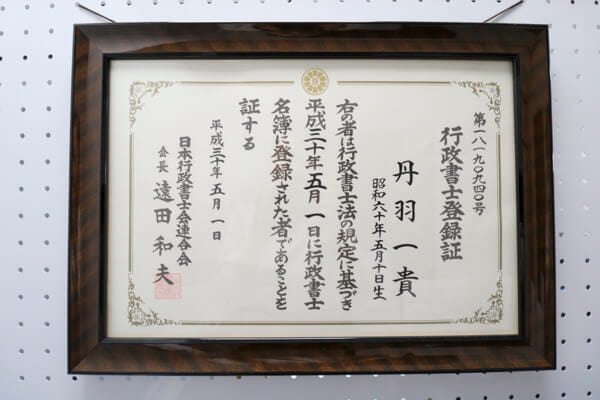 第一八一九〇九四〇号
行政書士登録証
丹羽一貴
昭和六十年五月十日生
右の者は行政書士法の規定に基づき
平成三十年五月一日に行政書士
名簿に登録された者であることを
証する
平成三十年五月一日
日本行政書士会連合会
会長 遠田和夫